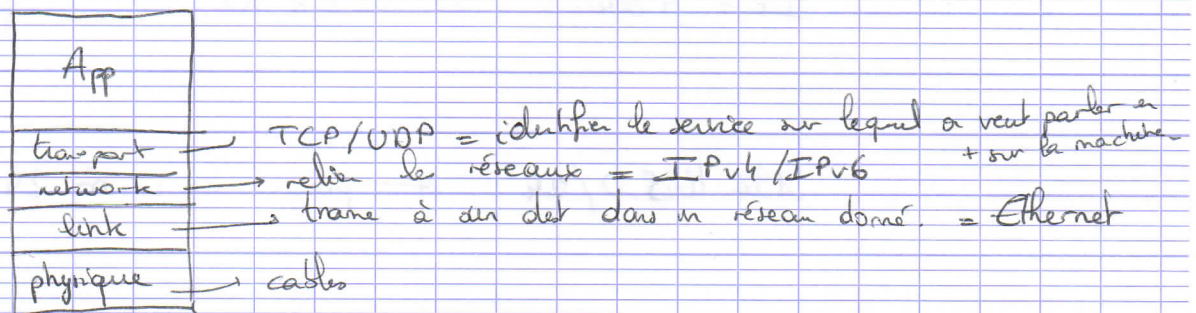 App
transport → TCP/UDP = identifier le service sur lequel on veut parler en
+ sur la machine
network → relier les réseaux = IPv4/IPv6
link → trame à un dest dans un réseau donné. = Ethernet
physique → cables